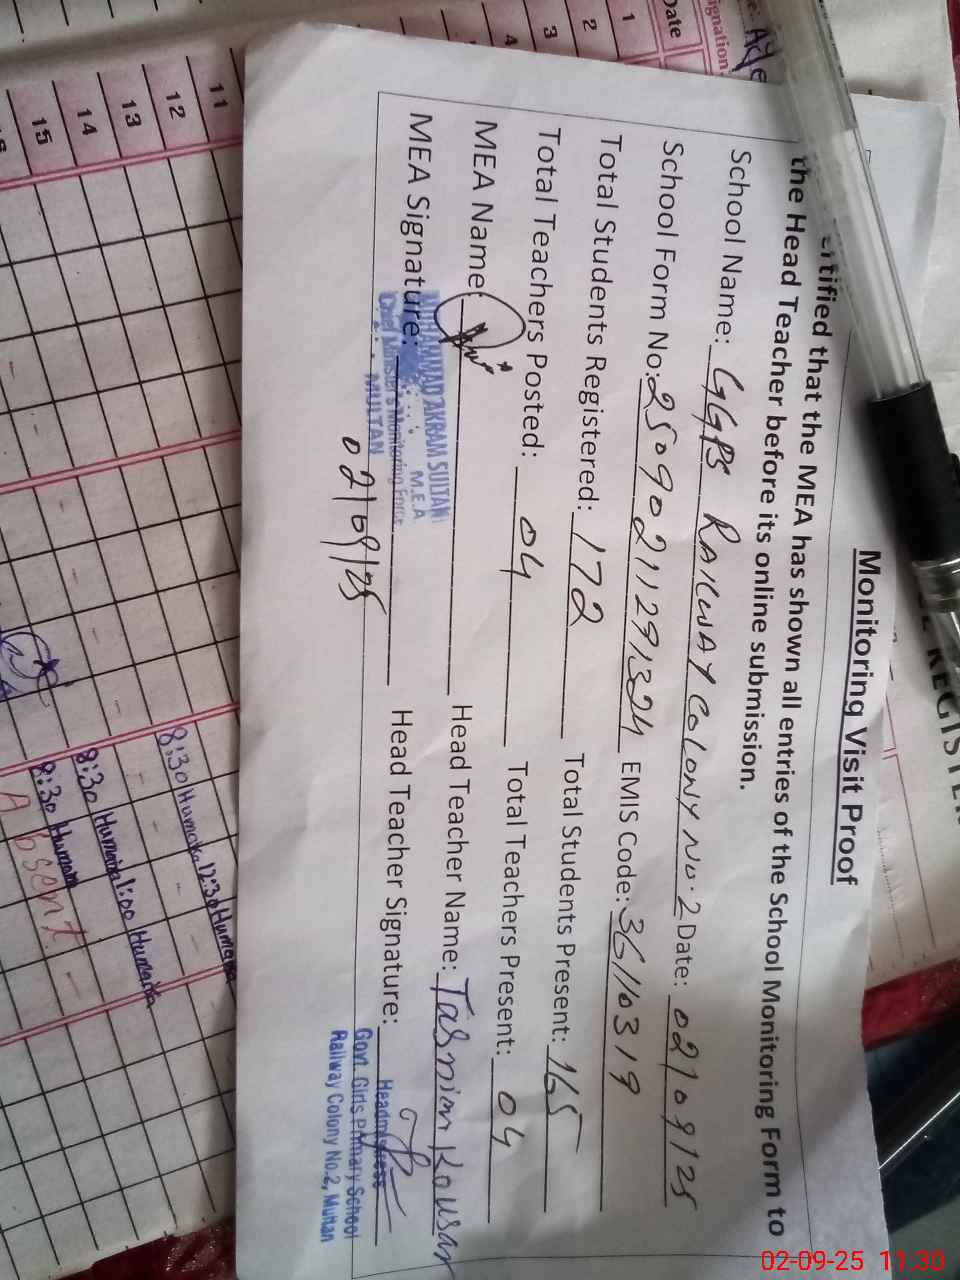 Monitoring Visit Proof
ertified that the MEA has shown all entries of the School Monitoring Form to
the Head Teacher before its online submission.
School Name: GGPS RAILWAY COLONY NO.2 Date: 02/09/25
School Form No: 25090211291324 EMIS Code: 36110319
Total Students Registered: 172 Total Students Present: 165
Total Teachers Posted: 04 Total Teachers Present: 04
MEA Name: Head Teacher Name: Tasnim Kousar
MEA Signature: Head Teacher Signature:
MUHAMMAD AKRAM SULTAN
M.E.A
Chief Minister's Monitoring Force
MULTAN
02/09/25
Headmistress
Govt. Girls Primary School
Railway Colony No.2, Multan
Date
1
2
3
4
11
12
13
14
15
8:30 Humaira 12:30 Humaira
8:30 Humaira 1:00 Humaira
8:30 Humaira
Absent
02-09-25 11:30